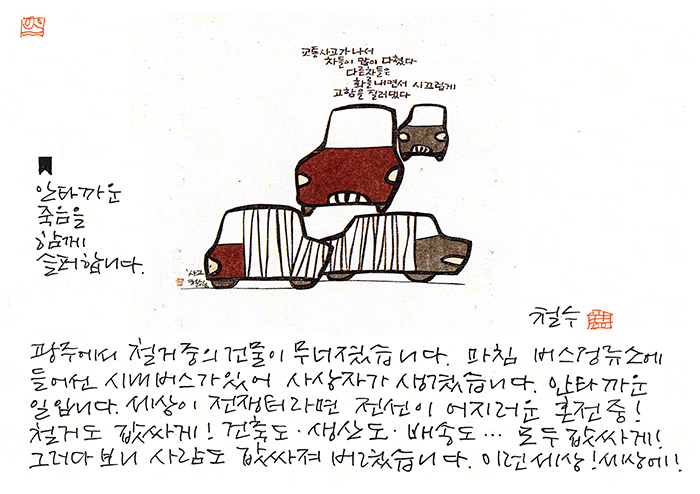 교통사고가 나서
차들이 많이 다쳤다
다른차들은
화를 내면서 시끄럽게
고함을 질러댔다
안타까운
죽음을
함께
슬퍼합니다.
'사고
철수
광주에서 철거중의 건물이 무너졌습니다. 마침 버스정류소에
들어선 시내버스가 있어 사상자가 생겼습니다. 안타까운
일입니다. 세상이 전쟁터라면 전선이 어지러운 혼전중!
철거도 값싸게! 건축도·생산도·배송도… 모두 값싸게!
그러다 보니 사람도 값싸져 버렸습니다. 이런세상! 세상에!